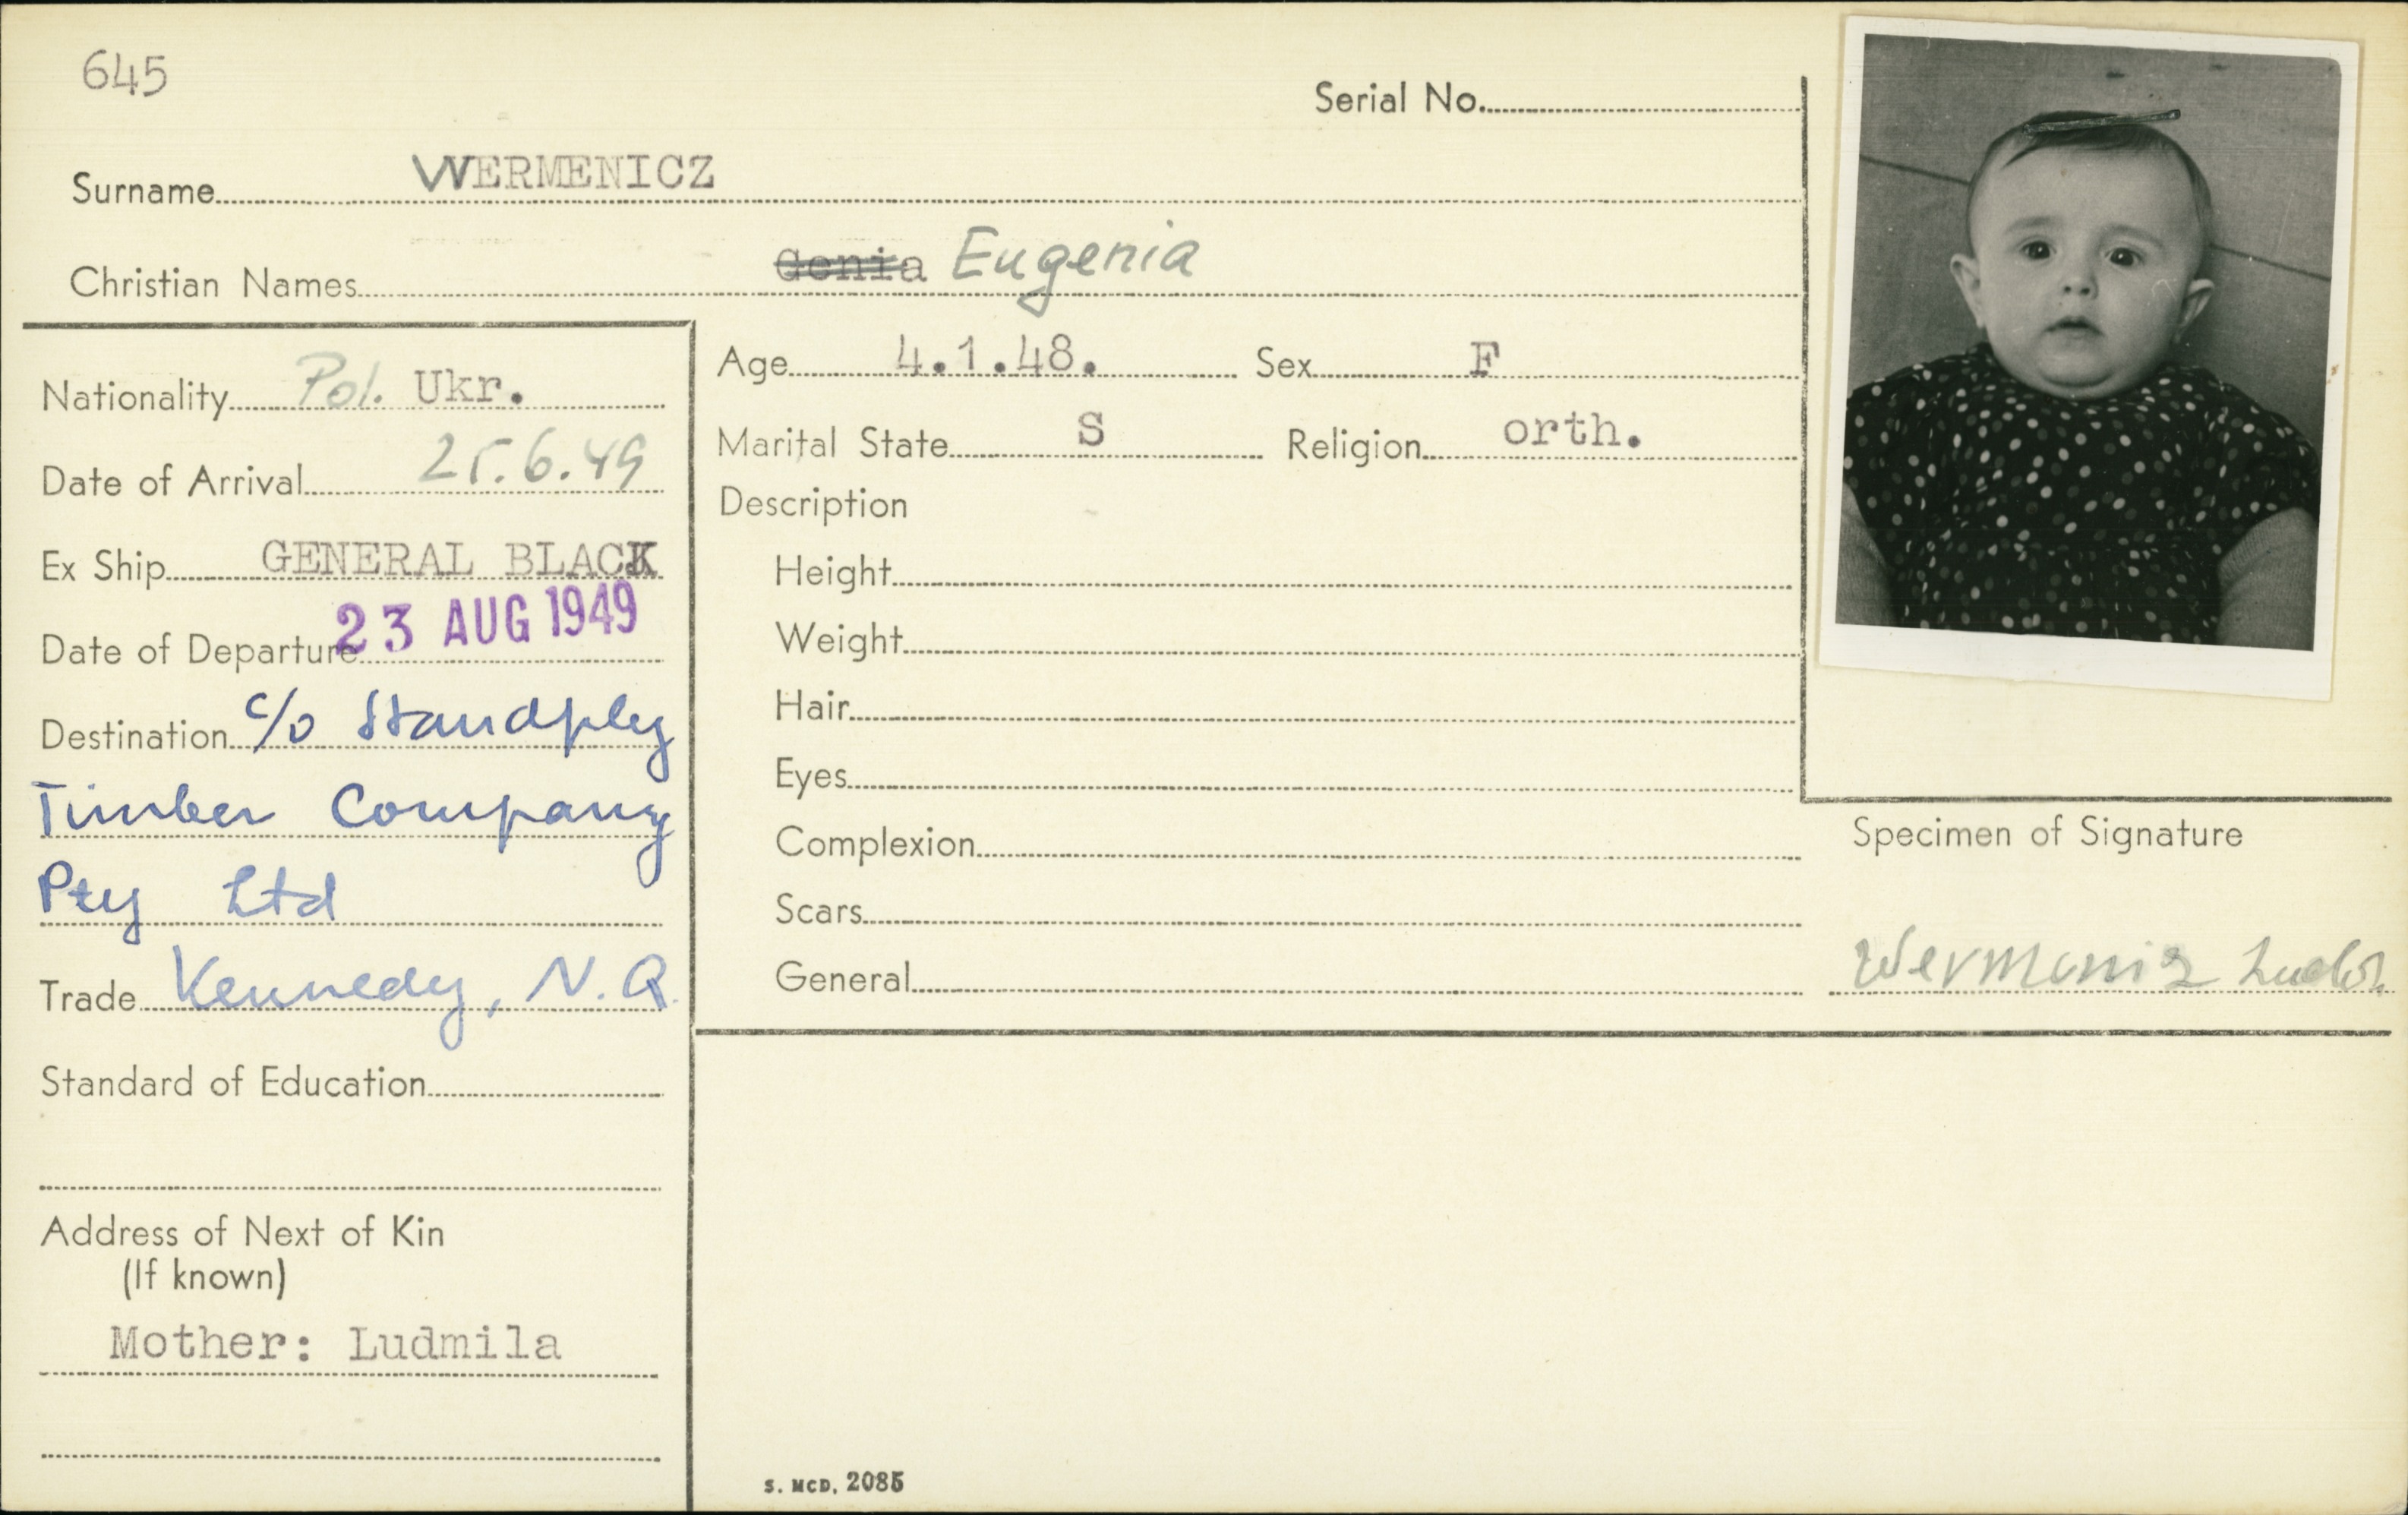 645
Serial No.
Surname WERMENICZ
Christian Names Genia Eugenia
Nationality Pol. Ukr.
Date of Arrival 25.6.49
Ex Ship GENERAL BLACK
Date of Departure 23 AUG 1949
Destination c/o Standply
Timber Company
Pty Ltd
Trade Kennedy, N.Q.
Standard of Education
Address of Next of Kin
(If known)
Mother: Ludmila
Age 4.1.48. Sex F
Marital State S Religion orth.
Description
Height
Weight
Hair
Eyes
Complexion
Scars
General
Specimen of Signature
S. MCD. 2085